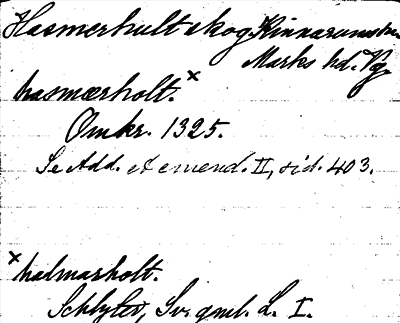 Hasmerhult skog. Kinnarumma
Marks hd. Vg.
hasmærholt.×
Omkr. 1325.
Se Add. et emend. II, sid. 403.
×halmarholt.
Schlyter, Sv. gml. L. I.